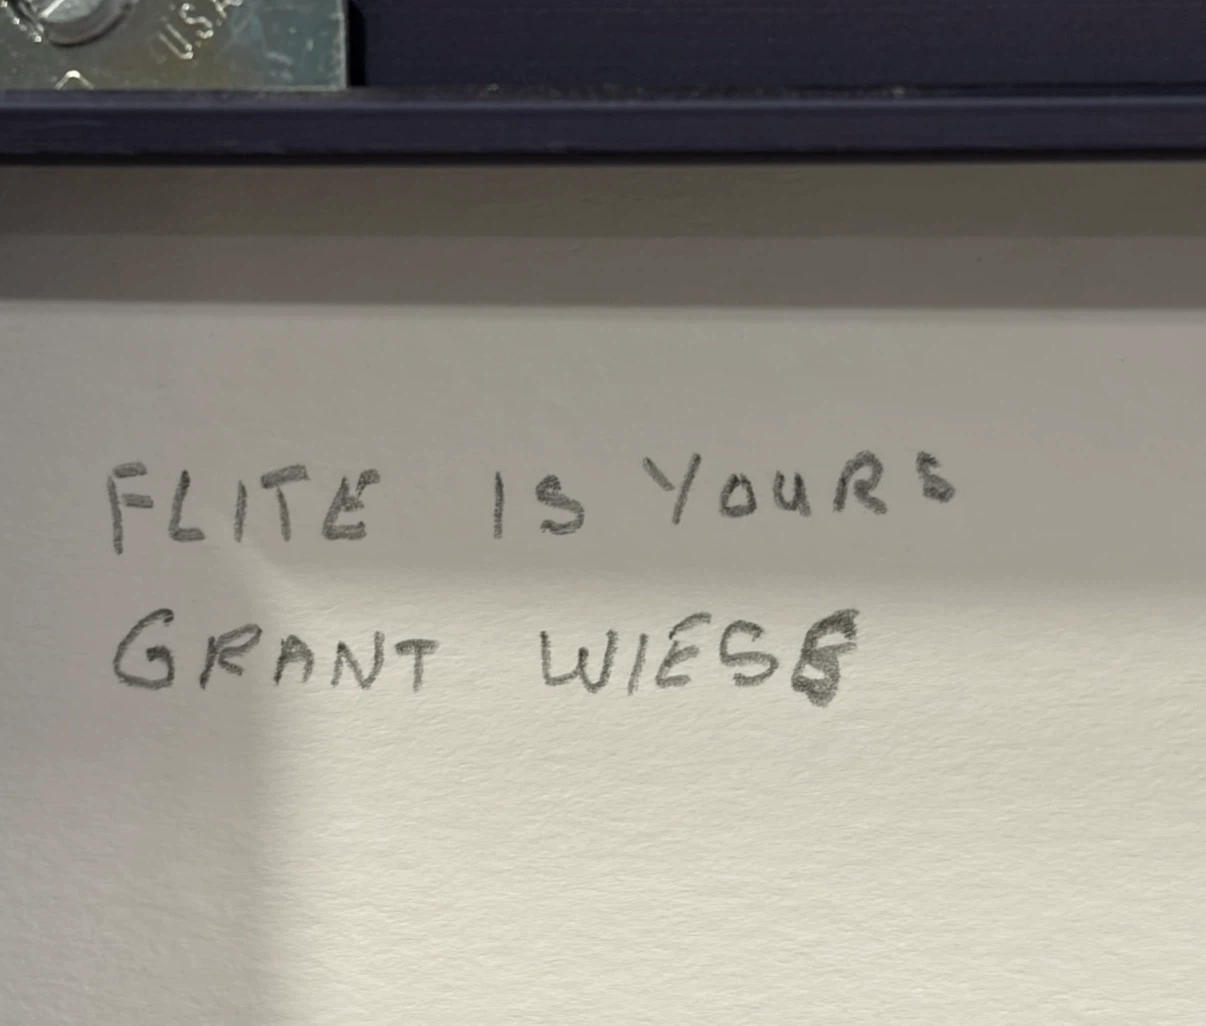 USA
FLITE IS YOURS
GRANT WIESE